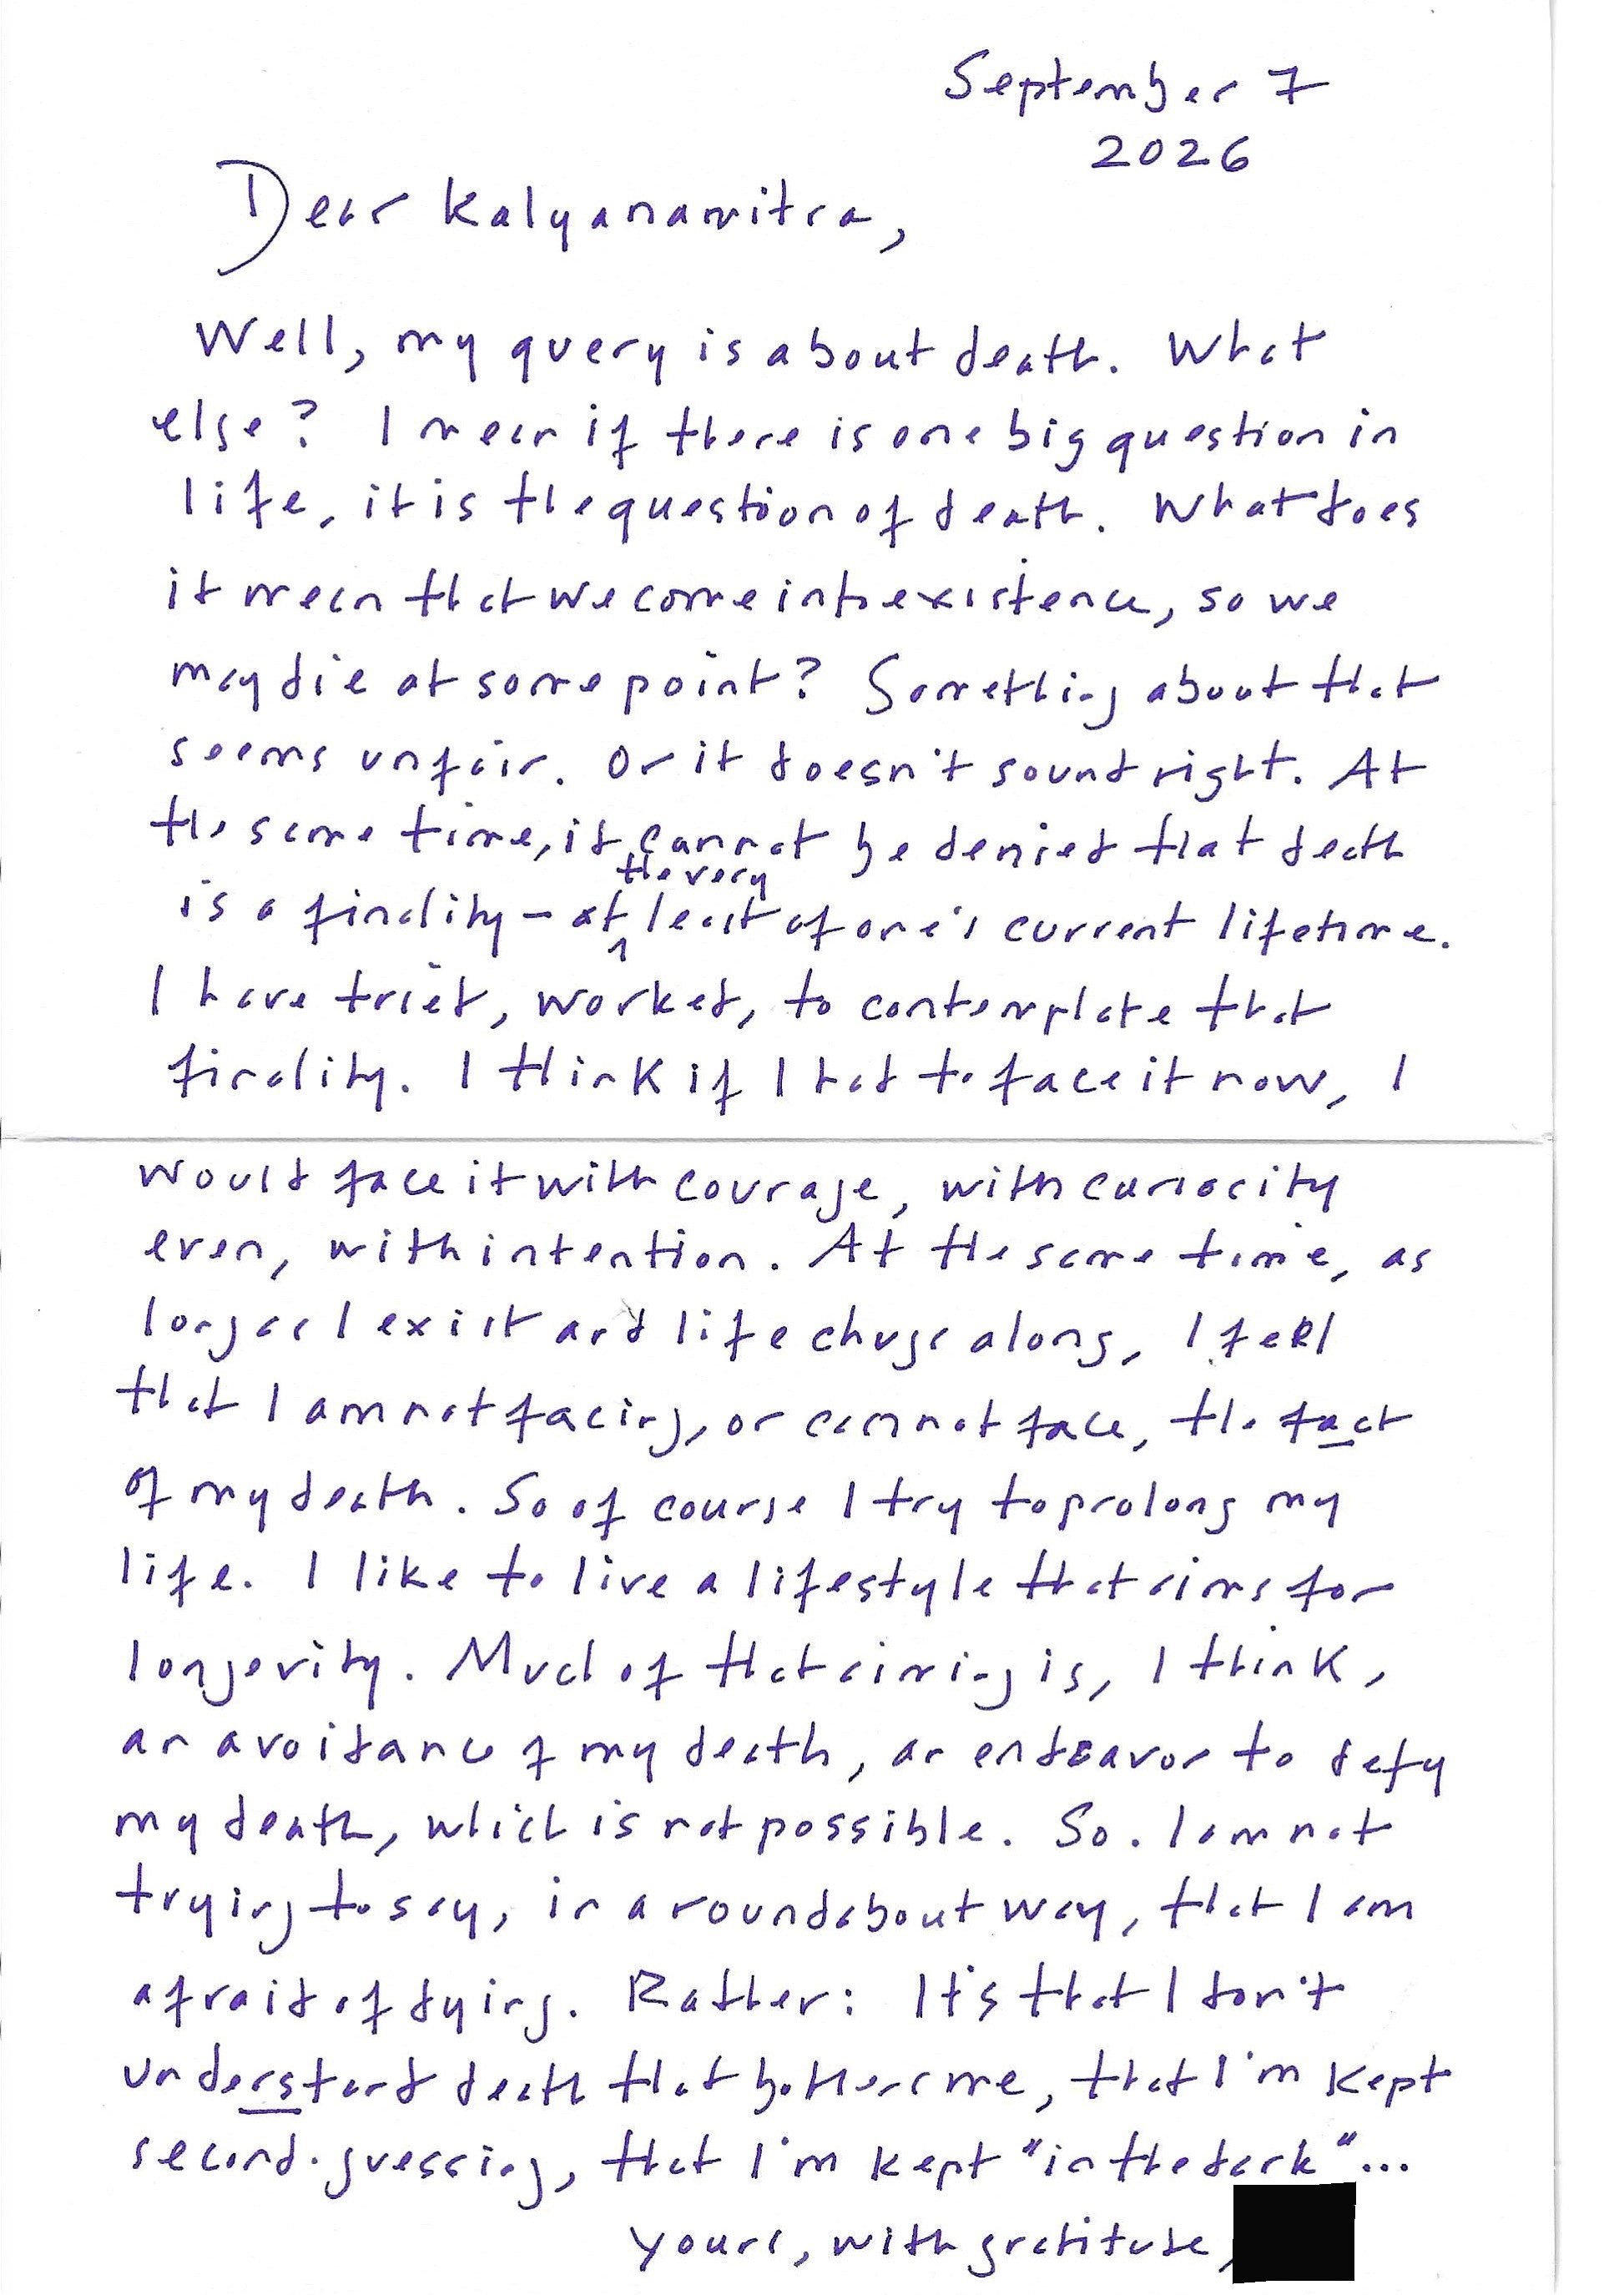 September 7
2026
Dear Kalyanamitra,
Well, my query is about death. What
else? I mean if there is one big question in
life, it is the question of death. What does
it mean that we come into existence, so we
may die at some point? Something about that
seems unfair. Or it doesn't sound right. At
the same time, it cannot be denied that death
the very
is a finality – at least of one's current lifetime.
I have tried, worked, to contemplate that
finality. I think if I had to face it now, I
would face it with courage, with curiocity
even, with intention. At the same time, as
long as I exist and life chugs along, I feel
that I am not facing, or cannot face, the fact
of my death. So of course I try to prolong my
life. I like to live a lifestyle that aims for
longevity. Much of that aiming is, I think,
an avoidance of my death, an endeavor to defy
my death, which is not possible. So. I am not
trying to say, in a roundabout way, that I am
afraid of dying. Rather: It's that I don't
understand death that bothers me, that I'm kept
second-guessing, that I'm kept "in the dark"...
Yours, with gratitude,